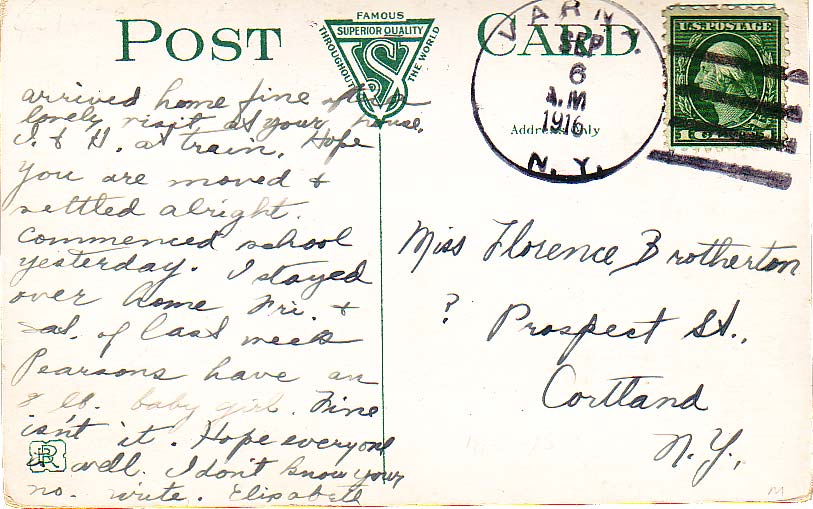 POST CARD
FAMOUS
SUPERIOR QUALITY
THROUGHOUT THE WORLD
VARNA
SEP
6
A.M
1916
N. Y.
U.S. POSTAGE
1 CENT 1
Address Only
arrived home fine after
lovely visit at your house.
J. & H. at train. Hope
you are moved &
settled alright.
Commenced school
yesterday. I stayed
over home Fri. &
Sat. of last week
Pearsons have an
8 lb. baby girl. Fine
isn't it. Hope everyone
is well. I don't know your
no. write. Elisabeth
Miss Florence Brotherton
? Prospect St.,
Cortland
N.Y.,